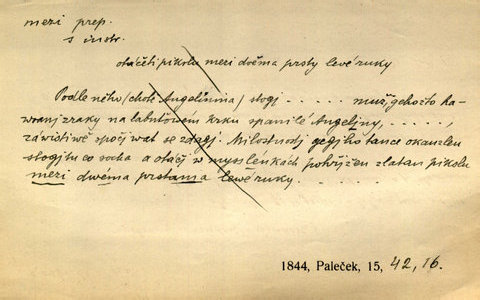 mezi prep.
s instr.
otáčeti pikolu mezi dvěma prsty levé ruky
Podle něho /chotě Angelinina/ stogj . . . . . muž, gehožto ha-
wranj zraky na labutowém krku spanilé Angeliny, . . . . . ,
záwistiwě spočjwat se zdagj. Milostnosti gegjho tance okauzlen
stogj tu co socha a otáčj w myšlenkách pohřjžen zlatau pikolu
mezi dwěma prstama lewé ruky. . . . . . . .
1844, Paleček, 15, 42, 16.